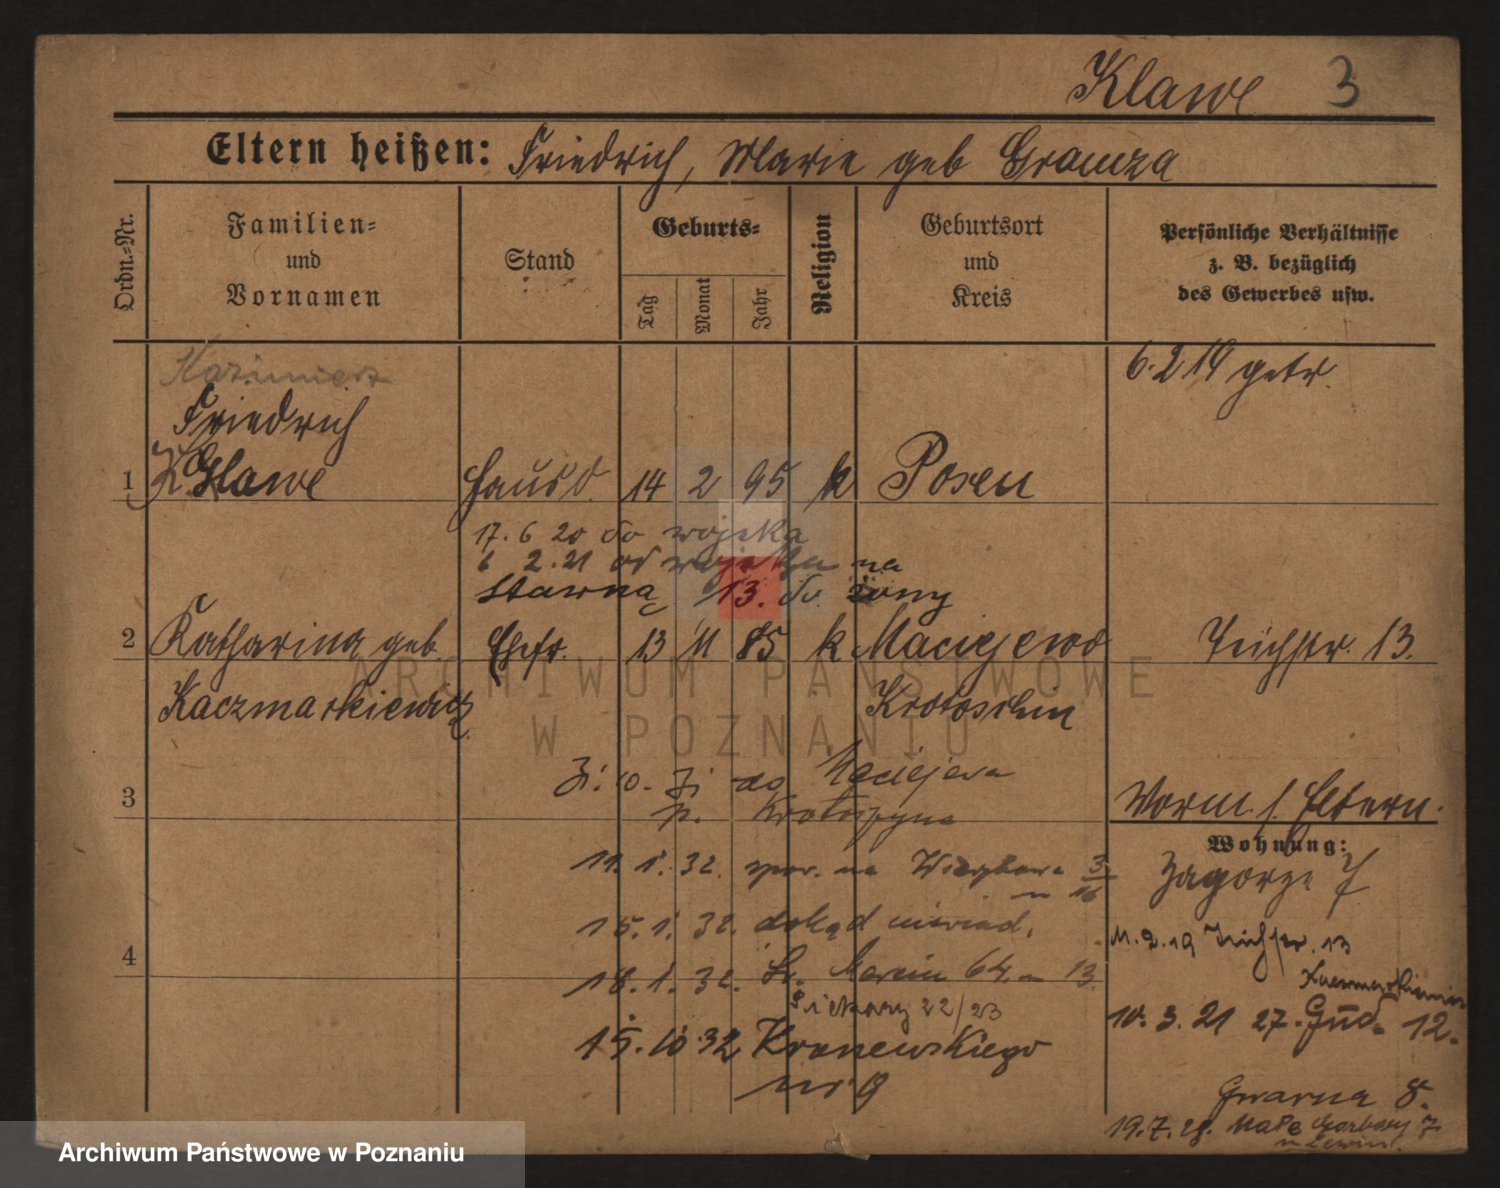 Klawe 3
Eltern heißen: Friedrich, Marie geb Gramza
Ordn.-Nr.
Familien-
und
Vornamen
Stand
Geburts-
Tag
Monat
Jahr
Religion
Geburtsort
und
Kreis
Persönliche Verhältnisse
z. B. bezüglich
des Gewerbes usw.
Kazimierz
6.2 19 getr.
Friedrich
1 Klawe Hausd. 14 2 95 k Posen
17. 6 20 do wojska
6 2.21 od wojska na
stawną 13. do żony
2 Katharina geb. Ehefr. 13 11 85 k Maciejewo Teichstr. 13.
Kaczmarkiewicz Krotoschin
do Maciejewa
3 p. Krotoszyna
Vorm. s. Eltern.
Wohnung:
11. 1. 32. na 3
16
Zagorze 7
15. 1. 32. dokąd niewiad.
11. 2. 19 Teichstr. 13
4
18. 1. 32. Św. Marcin 64 m 13.
Piekary 22/23
10. 3. 21 27. Grud. 12.
15. 10 32 Kranewskiego
nr 9
Gwarna 8.
19. 7. 28. Małe Garbary 7
ARCHIWUM PAŃSTWOWE
W POZNANIU
Archiwum Państwowe w Poznaniu